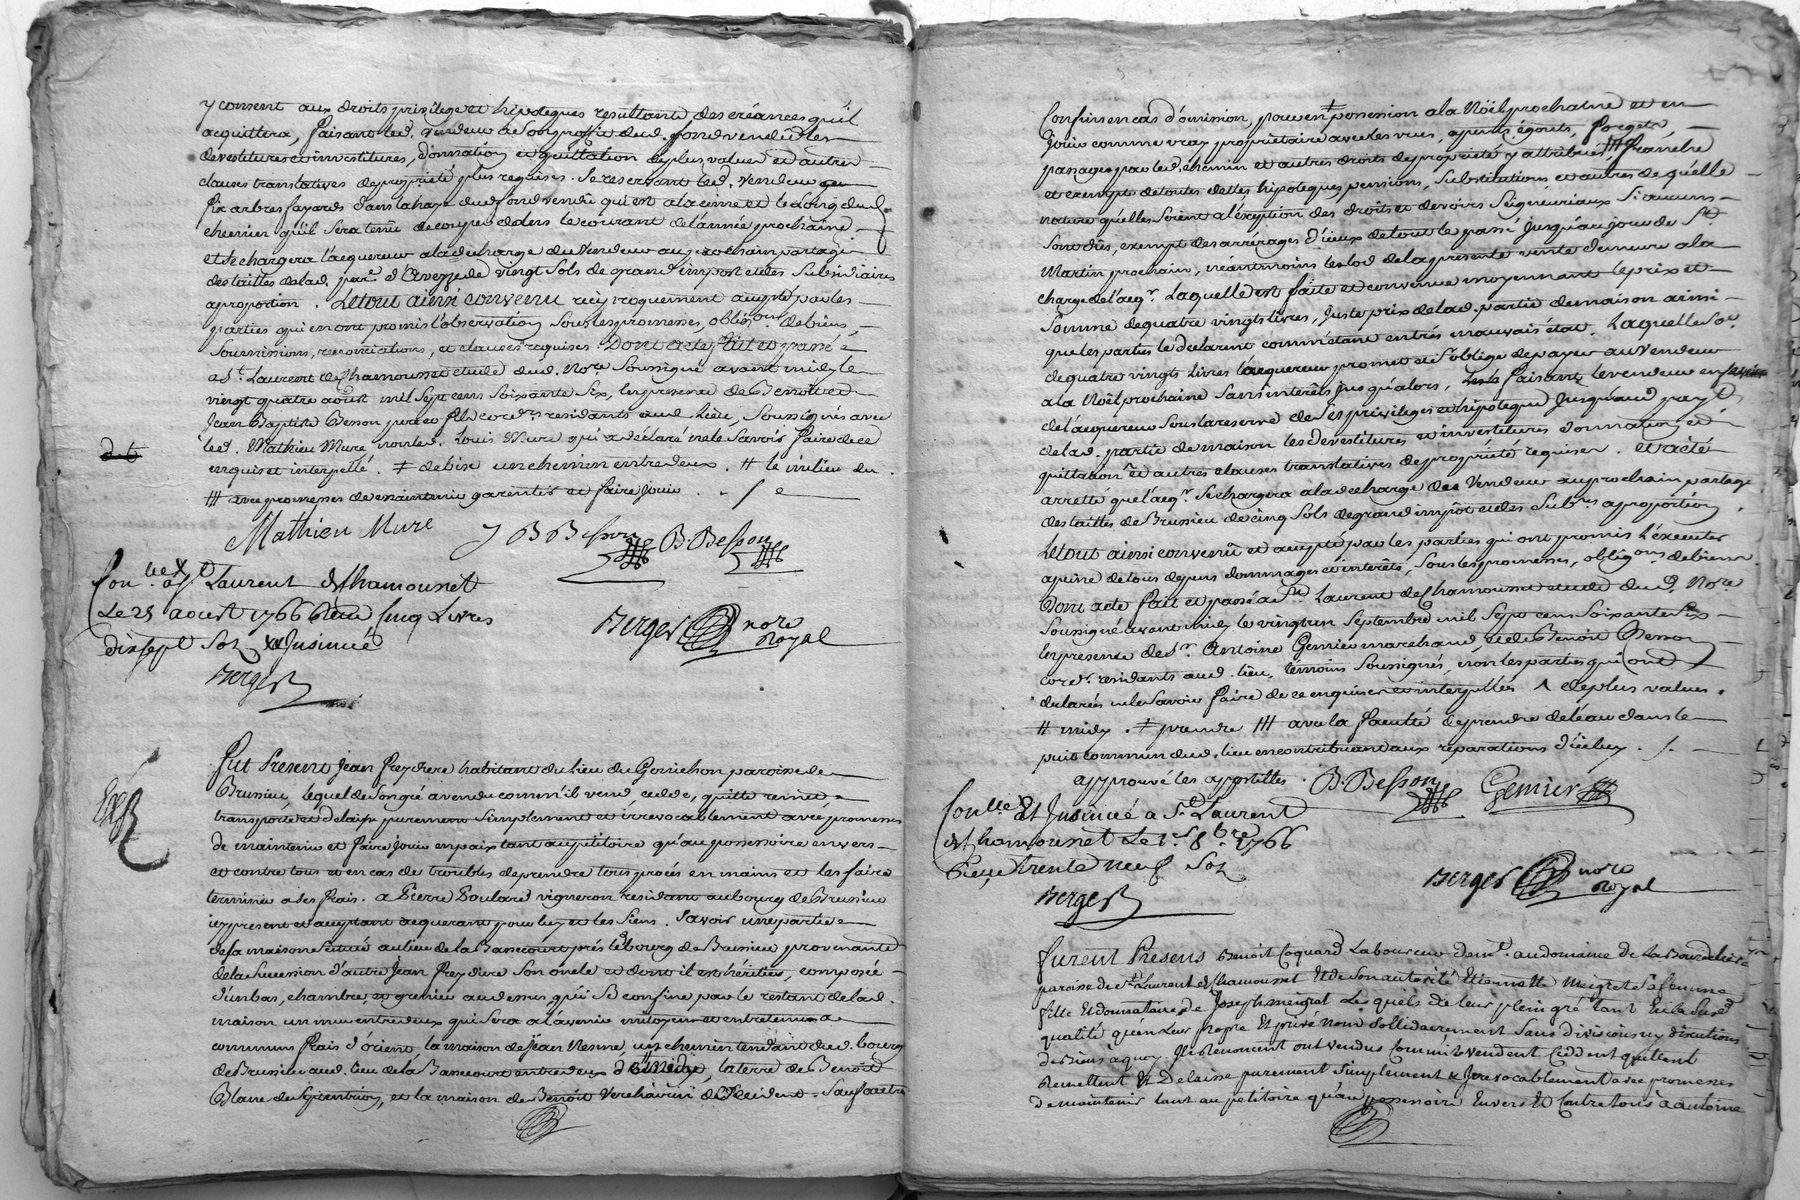 y consent aux droits privilege et hipoteques resultants des créances qu'il
acquittera, faisant led. vendeur a son profit dud. fond vendu les
devestitures et investitures, donnation et quittation de plus value et autres
clauses translatives de propriété plus requises. Se reservant led. vendeur
six arbres fayards dans la haye dud. fond vendu qui est a la cime et le long dud.
chemin qu'il sera tenu de couper dans le courant de l'année prochaine
et se chargera l'acquereur a la decharge du vendeur au prochain partage
des tailles de lad. par.e d'Aveyze de vingt sols de grand impost et des subsidiaires
a proportion. Le tout ainsi convenu reciproquement accepté par les
parties qui en ont promis l'observation sous les promesses, oblig.ons de biens,
soumissions, renonciations, et clauses requises. Dont acte fait et passé
a St. Laurent de Chamousset etude dud. No.re soussigné avant midy le
vingt quatre aoust mil sept cens soixante six, en presence de Benoit et
Jean Baptiste Besson pere et fils cord.rs residants aud. lieu, soussignés avec
led. Mathieu Mure non led. Louis Mure qui a déclaré ne le savoir faire de ce
enquis et interpellé. ≠ de bise un chemin entredeux. # le milieu du
||| avec promesses de maintenir garentir et faire jouir.
Mathieu Mure J B Besson B. Besson
Con.lle à St Laurent de Chamousset
Le 25 aoust 1766 Reçu cinq Livres
dix sept Sols Insinué
Berger
Berger no.re Royal
Fut Present Jean Freydiere habitant du lieu du Gonichon paroisse de
Brussieu, lequel de son gré a vendu comm'il vend, cedde, quitte remet
transporte et delaisse purement simplement et irrevocablement avec promesses
de maintenir et faire jouir en paix tant au petitoire qu'au possessoire envers
et contre tous et en cas de troubles de prendre tous procés en mains et les faire
terminer a ses frais. a Pierre Poulard vigneron residant au bourg de Brussieu
icy present et acceptant acquerant pour luy et les siens. Savoir une partie
de la maison située au lieu de la Bancourt prés le bourg de Brussieu provenante
de la succession d'autre Jean Freydiere son oncle et dont il est héritier, composée
d'un bas, chambre et grenier au dessus, qui se confine par le restant de lad.
maison un mur entredeux qui sera a l'avenir mitoyen et entretenu a
communs frais d'orient la maison de Jean Nesme, un chemin tendant dud. bourg
de Brussieu aud. lieu de la Bancourt entredeux de midy, la terre de Benoit
Blanc de septentrion, et la maison de Benoit Verchairin d'occident. Sauf autres
Confins en cas d'omission, pour en ≠ possession a la Noël prochaine et en
jouir comme vray proprietaire avec les vues, apents, égouts, forgets,
passages par led. chemin et autres droits de proprieté y attribués ||| franche
et exempte de toutes dettes hipoteques, pensions, substitutions, et autres de quelle
nature quelles soient a l'éxeption des droits et devoirs Seigneuriaux si aucuns
sont dûs, exempt des arrérages d'iceux de tout le passé jusqu'au jour de St.
Martin prochain, néantmoins les lod de la presente vente demeure a la
charge de l'acq.r Laquelle est faite et convenue moyennant le prix et
somme de quatre vingts livres, juste prix de lad. partie de maison ainsi
que les parties le declarent comm'etant en trés mauvais état. Laquelle So.e
de quatre vingts livres l'acquereur promet et s'oblige de payer au vendeur
a la Noël prochaine sans interêts jusqu'alors, faisant le vendeur en faveur
de l'acquereur sous la reserve de ses privileges et hipoteque jusqu'aud. pay.t
de lad. partie de maison les devestitures et investitures donnation et
quittation ^ et autres clauses translatives de propriété requises. et a été
arretté que l'acq.r se chargera a la decharge du Vendeur au prochain partage
des tailles de Brussieu de cinq sols de grand impôt et des sub.res a proportion.
Le tout ainsi convenû et accepté par les parties qui ont promis l'éxecuter
a peine de tous depens dommages et interêts, sous les promesses, oblig.ons de biens
Dont acte fait et passé a St. Laurent de Chamousset etude dud. No.re
soussigné avant midy le vingt un septembre mil sept cens soixante six
en presence de S.r Antoine Gemier marchand, et de Benoit Besson
cord.r residants aud. lieu, témoins soussignés, non les parties qui ont
declarés ne le savoir faire de ce enquises et interpellés ^ de plus value.
# midy. ≠ prendre ||| avec la faculté de prendre de l'eau dans le
puit commun dud. lieu en contribuant aux reparations d'iceluy.
approuvé les apostilles. B. Besson Gemier
Con.lle Et Insinué a St. Laurent
de Chamousset Le 1.r 8.bre 1766
Reçu trente neuf Sols
Berger
Berger no.re Royal
Furent Presens Benoit Coquard Laboureur dem.t au domaine de la Bourdeliere
paroisse de St. Laurent de Chamousset Et de son autorité Etiennette Meigret sa femme
fille Et donnataire de Joseph meigret Lesquels de leur plein gré tant En la susd.
qualité qu'en leur propre Et privé nom sollidairement sans division ny discution
de Biens a quoy ils Renoncent ont vendus Comm'ils vendent Ceddent quittent
Remettent Et Delaissent purement Simplement & Irrevocablement avec promesses
de maintenir tant au petitoire qu'au possessoire Envers Et Contre tous a antoine